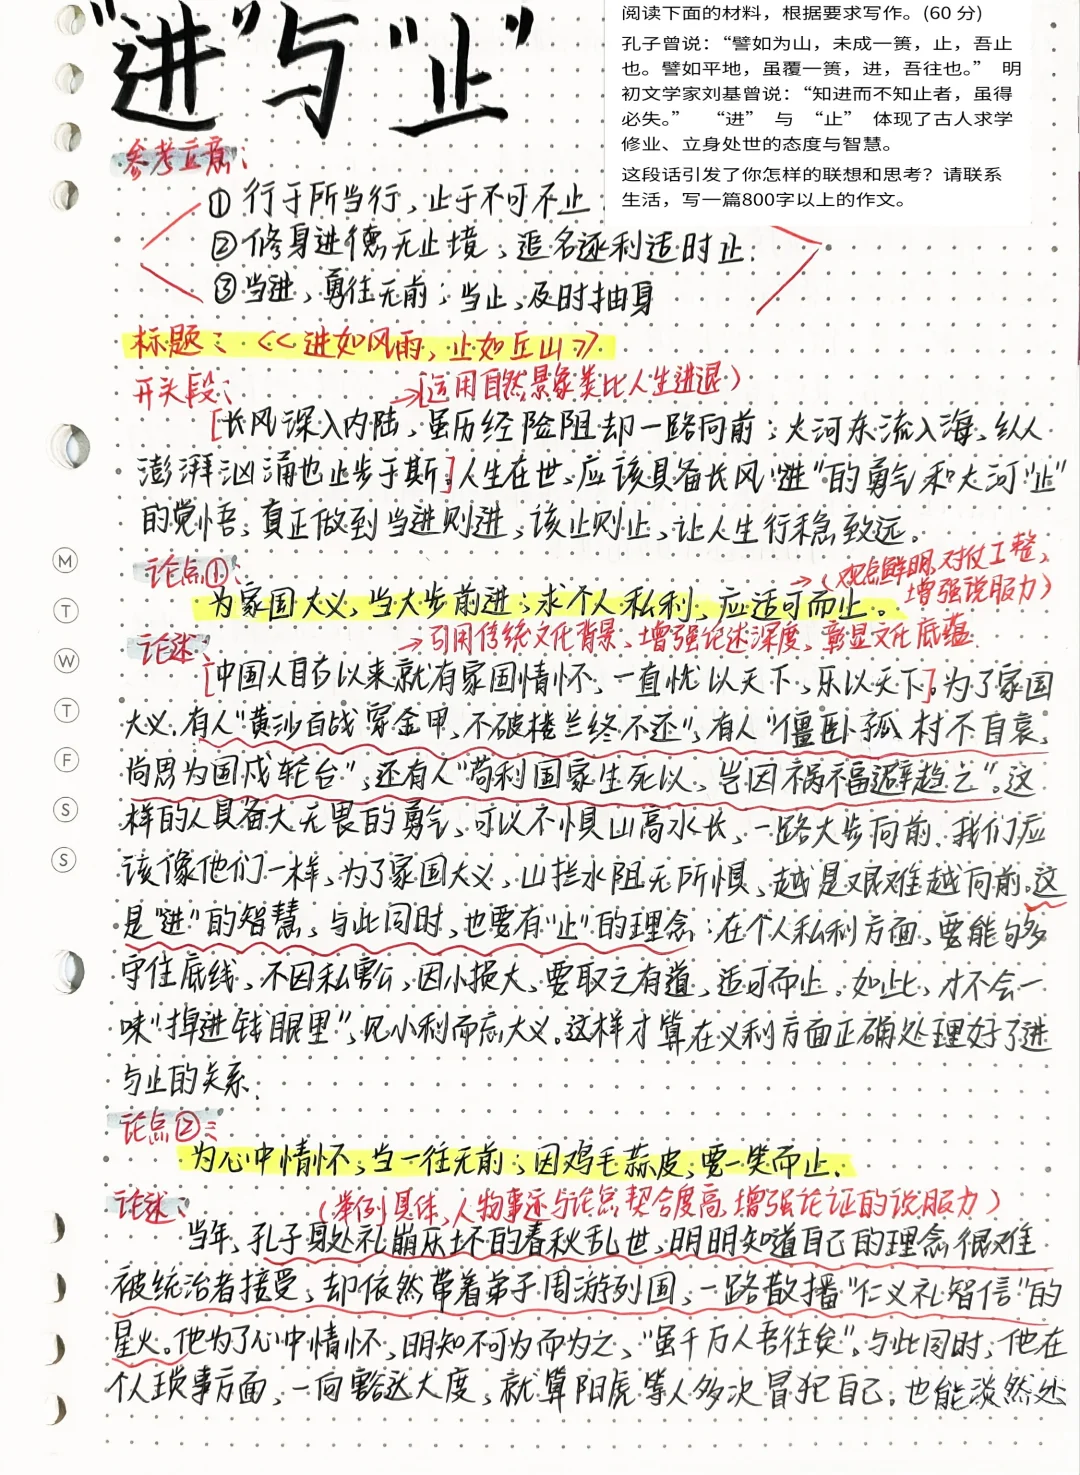 "进"与"止"
阅读下面的材料，根据要求写作。(60 分)
孔子曾说："譬如为山，未成一篑，止，吾止
也。譬如平地，虽覆一篑，进，吾往也。" 明
初文学家刘基曾说："知进而不知止者，虽得
必失。" "进" 与 "止" 体现了古人求学
修业、立身处世的态度与智慧。
这段话引发了你怎样的联想和思考？请联系
生活，写一篇800字以上的作文。
参考立意：
① 行于所当行，止于不可不止
② 修身进德无止境；追名逐利适时止.
③ 当进，勇往无前；当止，及时抽身
标题：《进如风雨，止如丘山》
开头段： →[运用自然景象类比人生进退)
[长风深入内陆，虽历经险阻却一路向前；大河东流入海，纵
澎湃汹涌也止步于斯]人生在世，应该具备长风"进"的勇气和大河"止"
的觉悟，真正做到当进则进，该止则止，让人生行稳致远。
论点①： →(观点鲜明，对仗工整，
增强说服力)
为家国大义，当大步前进；求个人私利，应适可而止。
论述： →引用传统文化背景，增强论述深度，彰显文化底蕴
[中国人自古以来就有家国情怀，一直忧以天下，乐以天下]。为了家国
大义，有人"黄沙百战穿金甲，不破楼兰终不还"，有人"僵卧孤村不自哀，
尚思为国戍轮台"，还有人"苟利国家生死以，岂因祸福避趋之"。这
样的人具备大无畏的勇气，可以不惧山高水长，一路大步向前。我们应
该像他们一样，为了家国大义，山拦水阻无所惧，越是艰难越向前。这
是"进"的智慧，与此同时，也要有"止"的理念：在个人私利方面，要能够
守住底线，不因私害公，因小损大，要取之有道，适可而止。如此，才不会一
味"掉进钱眼里"，见小利而忘大义。这样才算在义利方面正确处理好了进
与止的关系.
论点②：
为心中情怀，当一往无前；因鸡毛蒜皮，要一笑而止.
论述： (举例具体，人物事迹与论点契合度高，增强论证的说服力)
当年，孔子身处礼崩乐坏的春秋乱世，明明知道自己的理念很难
被统治者接受，却依然带着弟子周游列国，一路散播"仁义礼智信"的
星火。他为了心中情怀，明知不可为而为之，"虽千万人吾往矣"。与此同时，他在
个人琐事方面，一向豁达大度，就算阳虎等人多次冒犯自己，也能淡然处
M
T
W
T
F
S
S